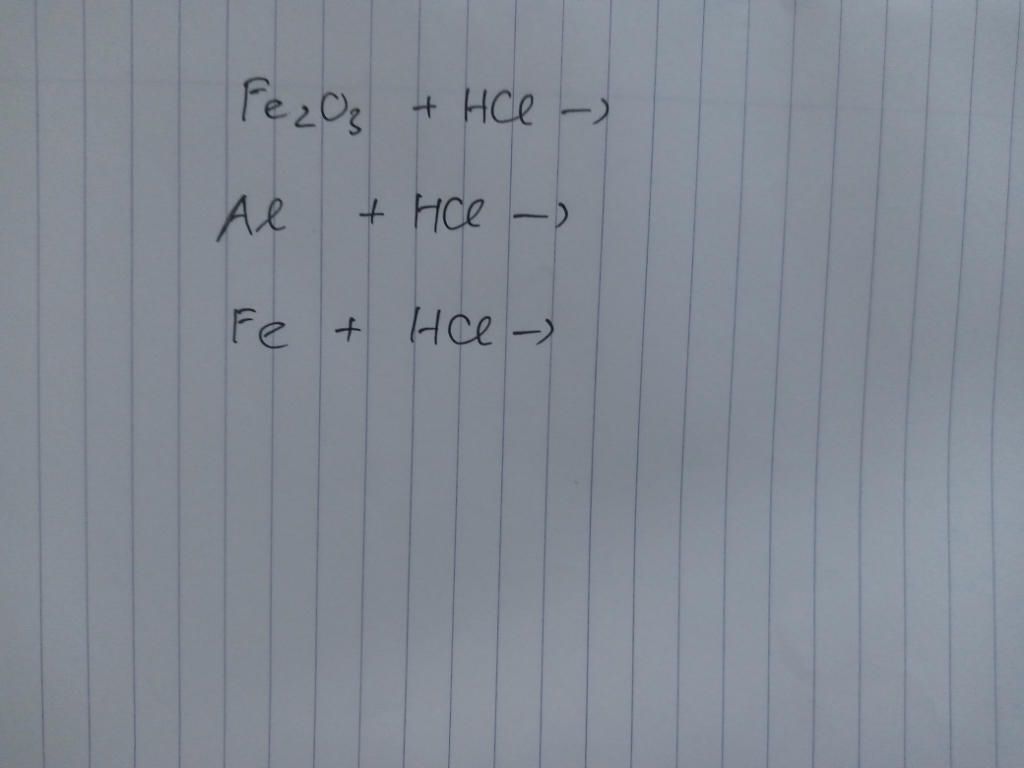 Fe₂O₃ + HCl →
Al + HCl →
Fe + HCl →